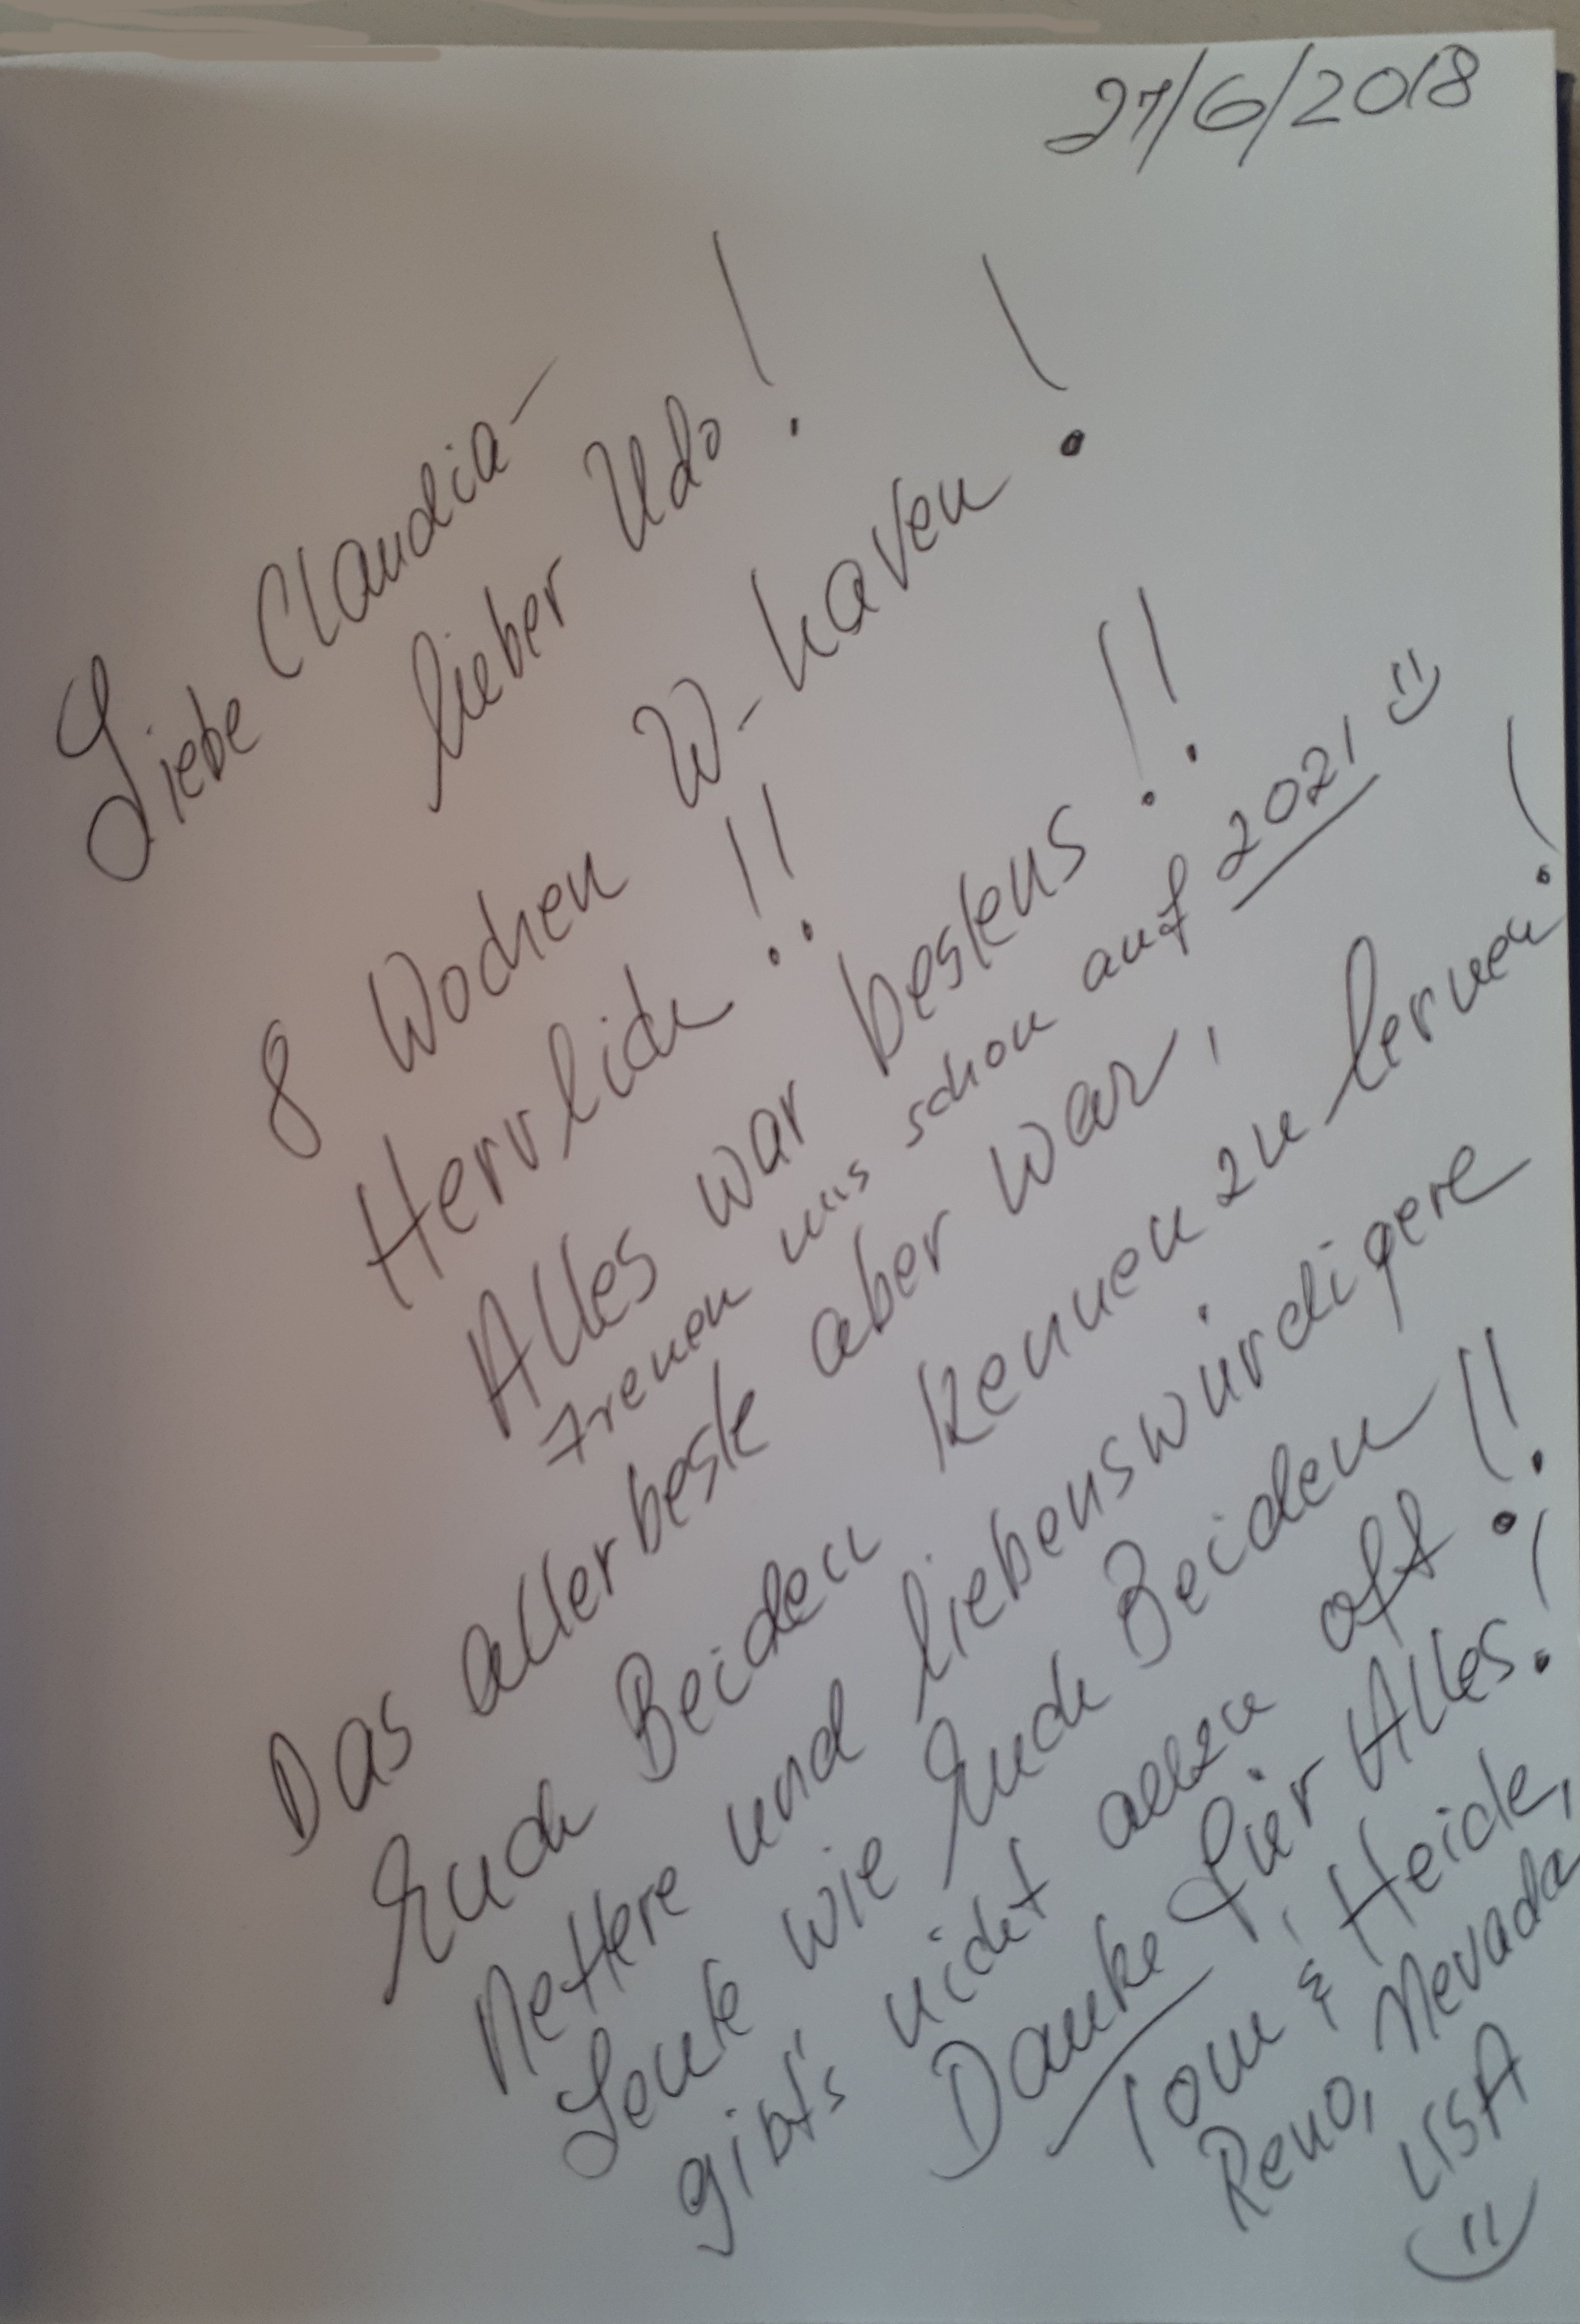 27/6/2018
Liebe Claudia-
lieber Udo!
8 Wochen W-haven!
Herrlich!!
Alles war bestens!!
Freuen uns schon auf 2021 ☺
Das allerbeste aber war,
Euch Beiden kennen zu lernen!
Nettere und liebenswürdigere
Leute wie Euch Beiden
gibt's nicht allzu oft!!
Danke für Alles!
Tom & Heide,
Reno, Nevada
USA
☺